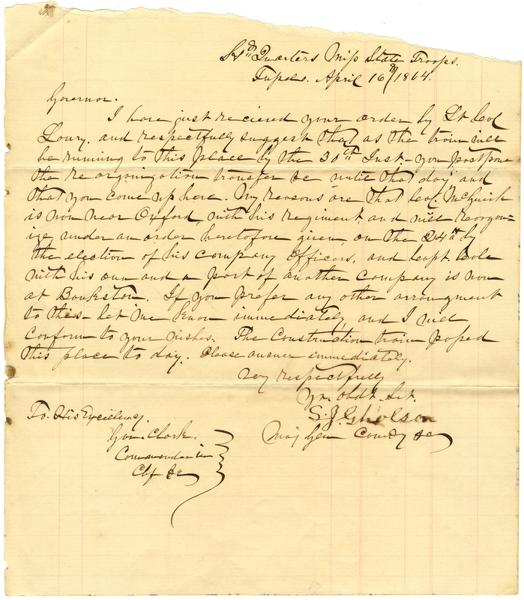 Hd Quarters Miss State Troops.
Tupelo. April 16th/1864.
Governor.
I have just recieved your order by Lt Col
Loury. and respectfully suggest that as the train will
be running to this place by the 30th Inst. you postpone
the re organization transfer &c until that day and
that you come up here. My reasons are that Col. McGuirk
is now near Oxford, with his Regiment and will Reorgan-
ize, under an order heretofore given, on the 24th by
the election of his company officers, and Capt Bole
with his own and a part of another company is now
at Bankston. If you prefer any other arrangment
to this- let me know immediately and I will
conform to your wishes. The Construction train passed
this place to day. Please answer immediately.
Very Respectfully
Yr. obdt. Svt.
S. J. Gholson
Maj Genl Comdg &c
To. His Excellency.
Gov. Clark.
Commander in
Chf &c